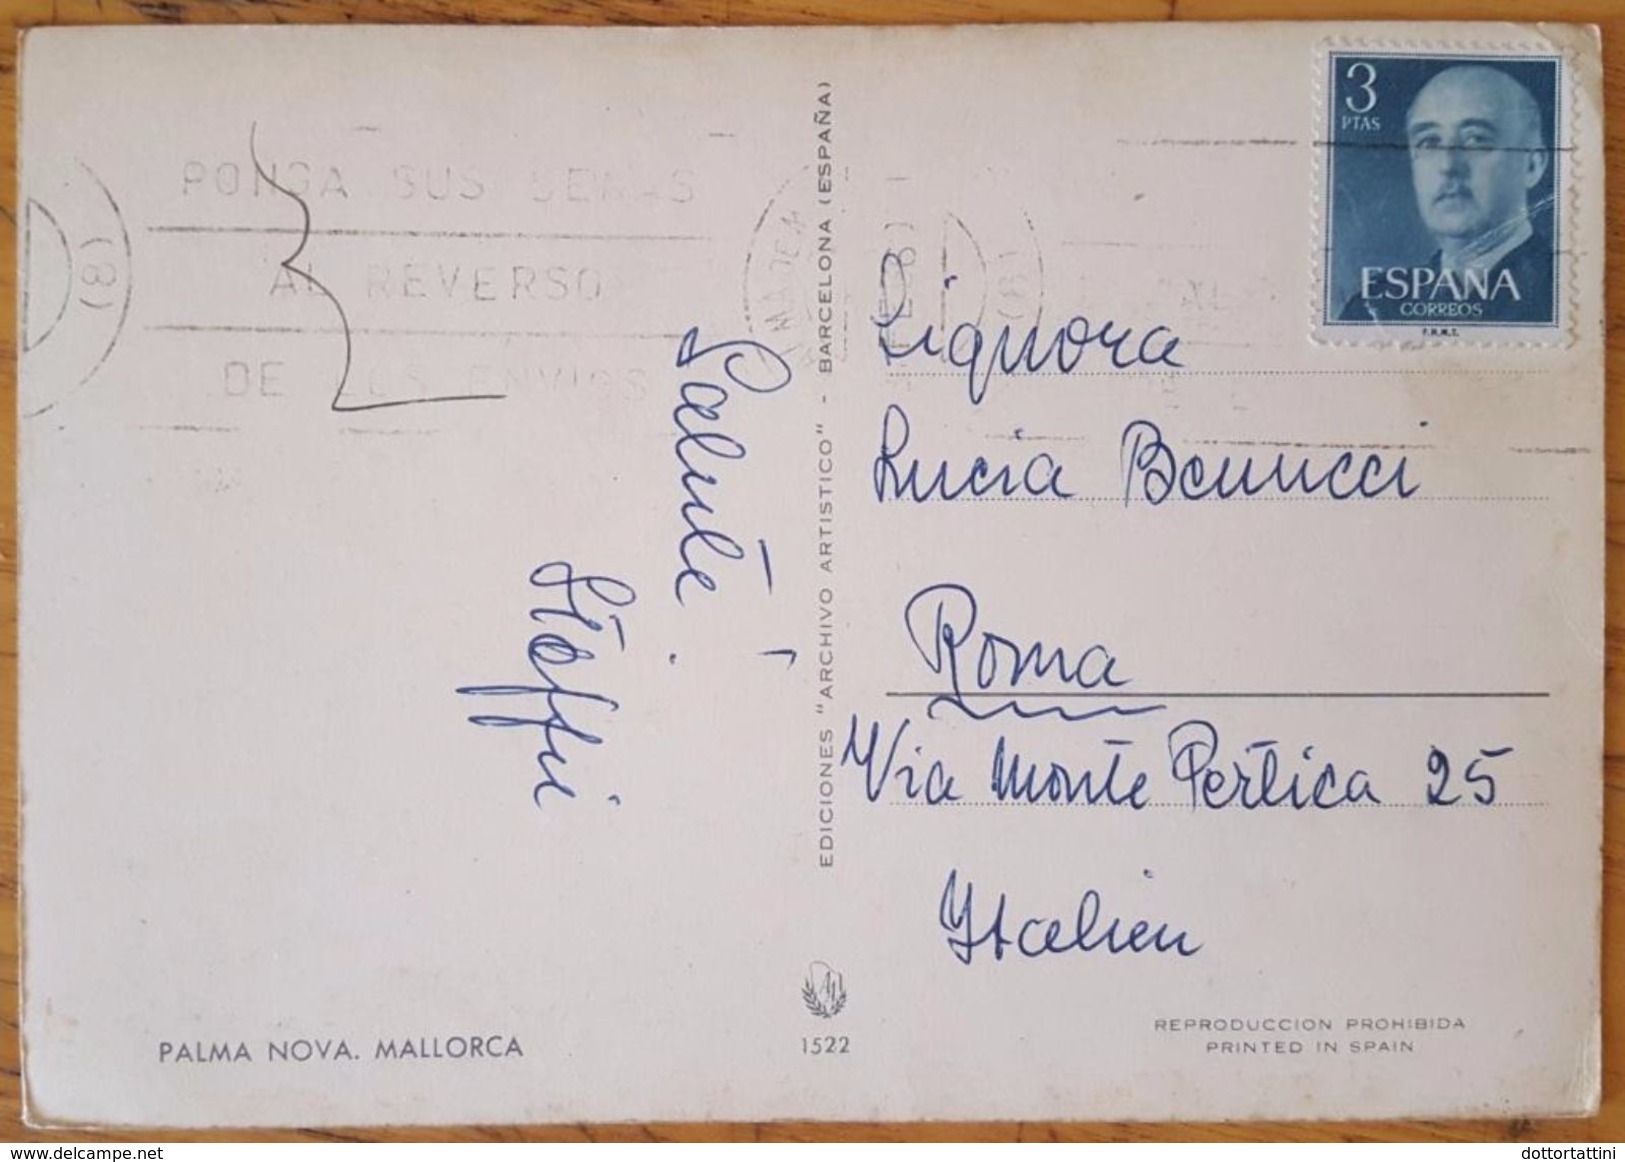 PONGA SUS SEÑAS
AL REVERSO
DE LOS ENVIOS
(8)
Salute!
Stoffi
PALMA NOVA. MALLORCA
EDICIONES "ARCHIVO ARTISTICO" - BARCELONA (ESPAÑA)
1522
3
PTAS
ESPAÑA
CORREOS
F.N.M.T.
Signora
Lucia
Roma
Via Monte Pertica 25
Italien
REPRODUCCION PROHIBIDA
PRINTED IN SPAIN
www.delcampe.net
dottortattini